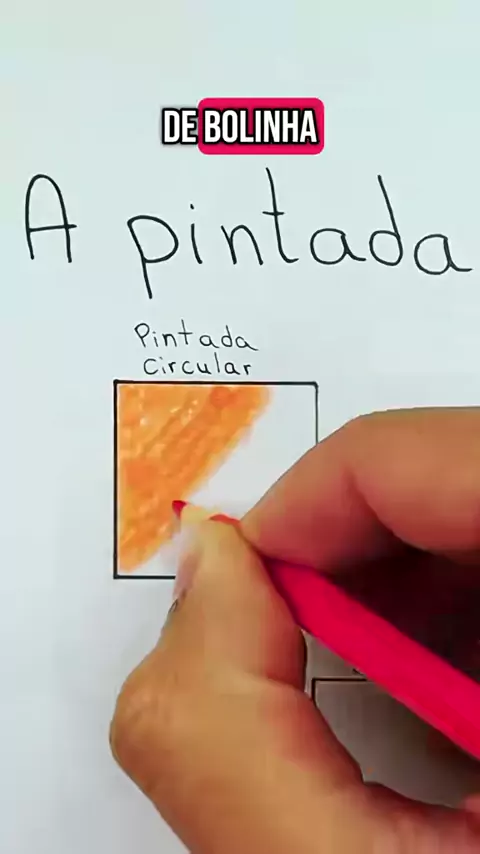 DE BOLINHA
A pintada
Pintada
circular